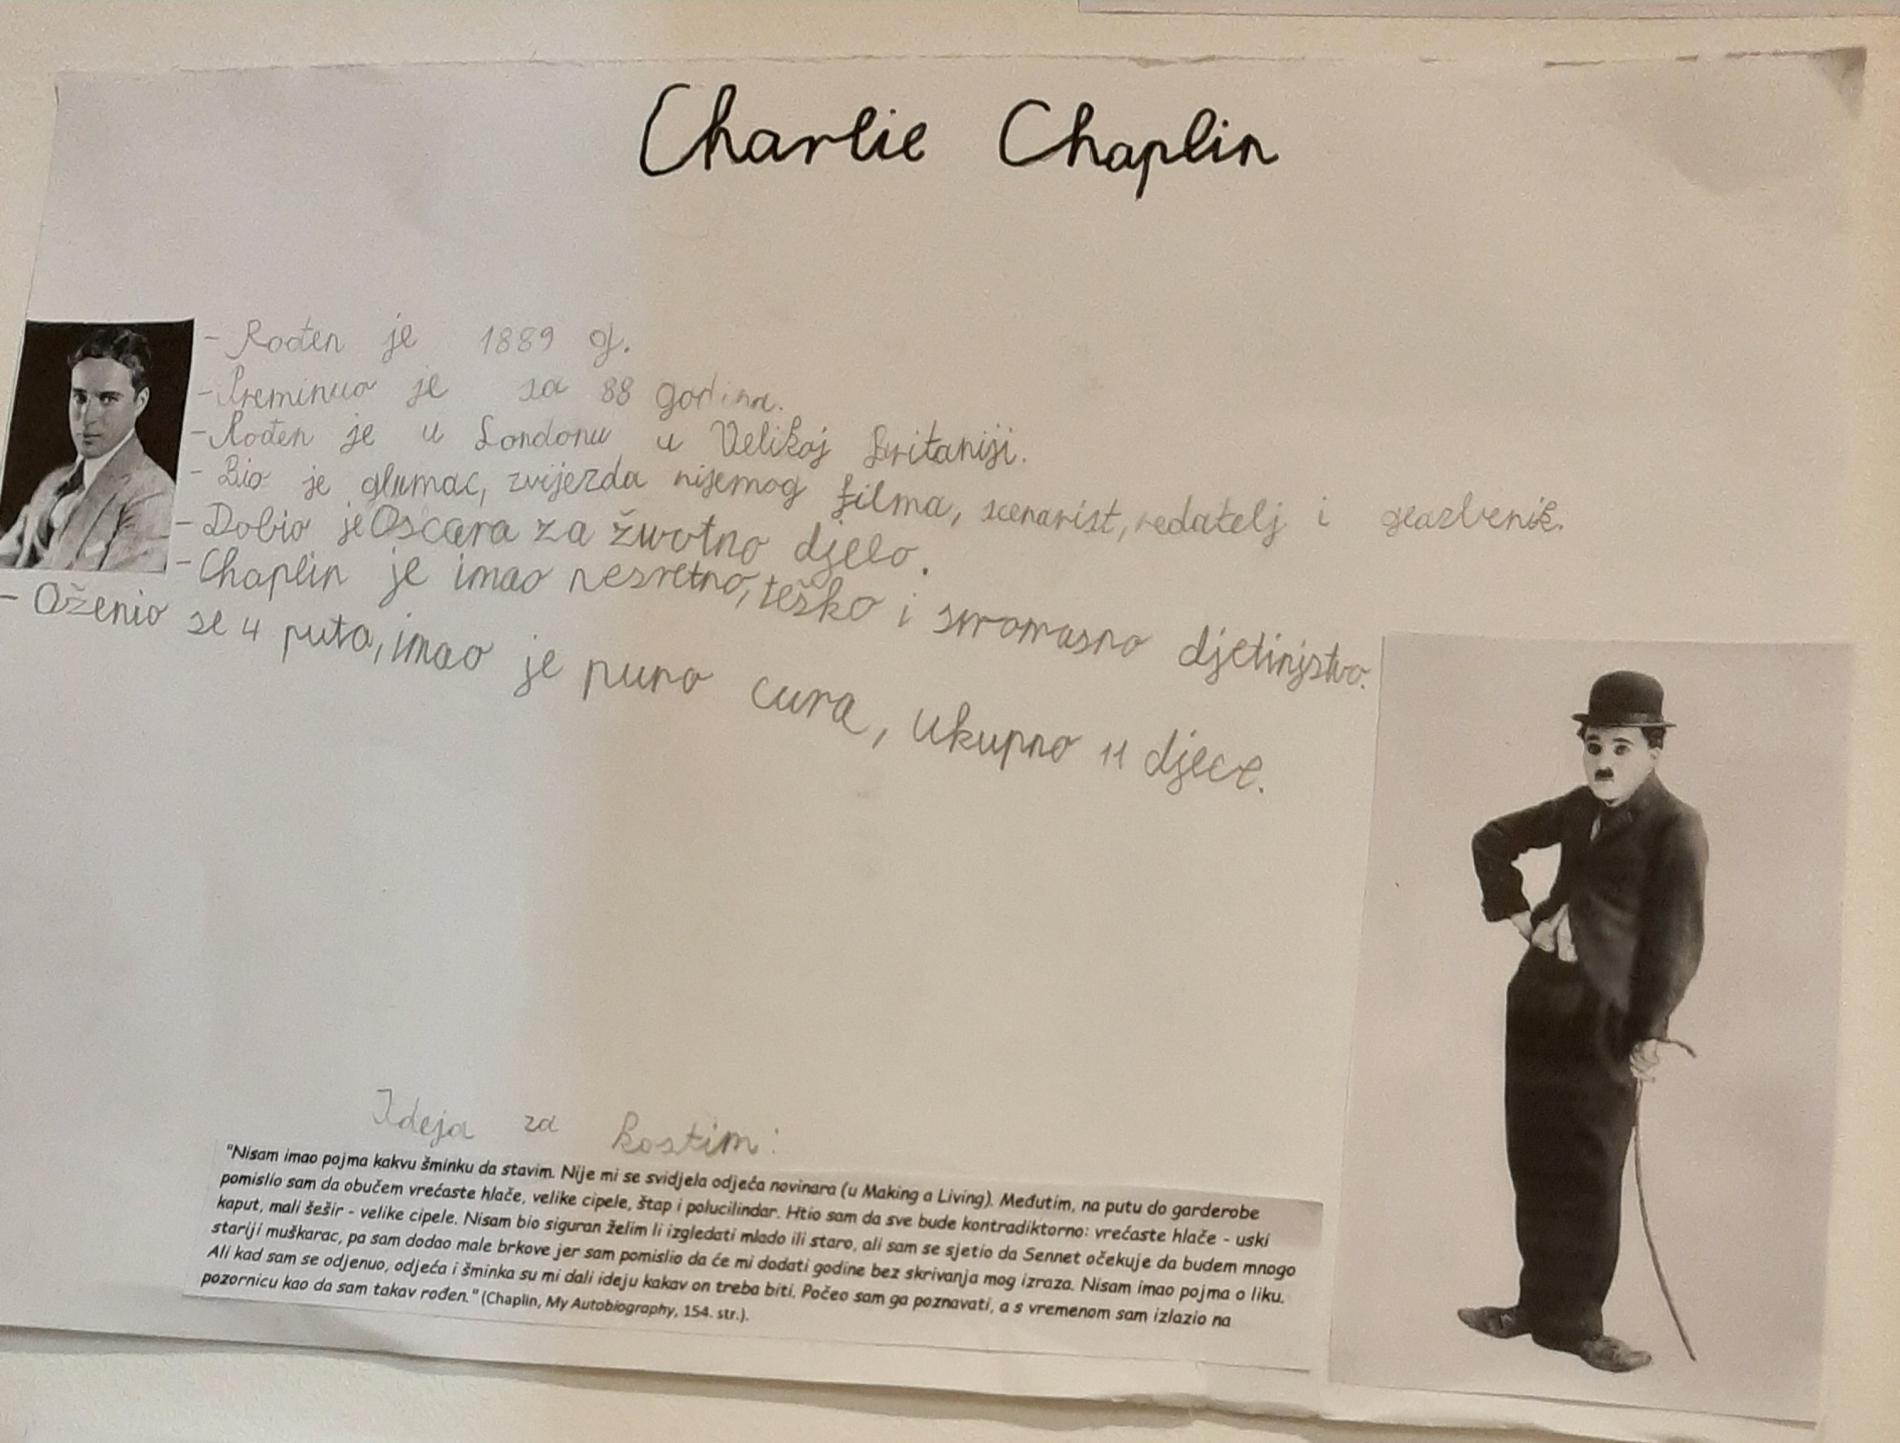 Charlie Chaplin
- Rođen je 1889 g.
- Preminuo je sa 88 godina.
- Rođen je u Londonu u Velikoj Britaniji.
- Bio je glumac, zvijezda nijemog filma, scenarist, redatelj i glazbenik.
- Dobio je Oscara za životno djelo.
- Chaplin je imao nesretno, teško i siromašno djetinjstvo.
- Oženio se 4 puta, imao je puno cura, ukupno 11 djece.
Ideja za kostim:
"Nisam imao pojma kakvu šminku da stavim. Nije mi se svidjela odjeća novinara (u Making a Living). Međutim, na putu do garderobe
pomislio sam da obučem vrećaste hlače, velike cipele, štap i polucilindar. Htio sam da sve bude kontradiktorno: vrećaste hlače - uski
kaput, mali šešir - velike cipele. Nisam bio siguran želim li izgledati mlado ili staro, ali sam se sjetio da Sennet očekuje da budem mnogo
stariji muškarac, pa sam dodao male brkove jer sam pomislio da će mi dodati godine bez skrivanja mog izraza. Nisam imao pojma o liku.
Ali kad sam se odjenuo, odjeća i šminka su mi dali ideju kakav on treba biti. Počeo sam ga poznavati, a s vremenom sam izlazio na
pozornicu kao da sam takav rođen." (Chaplin, My Autobiography, 154. str.).